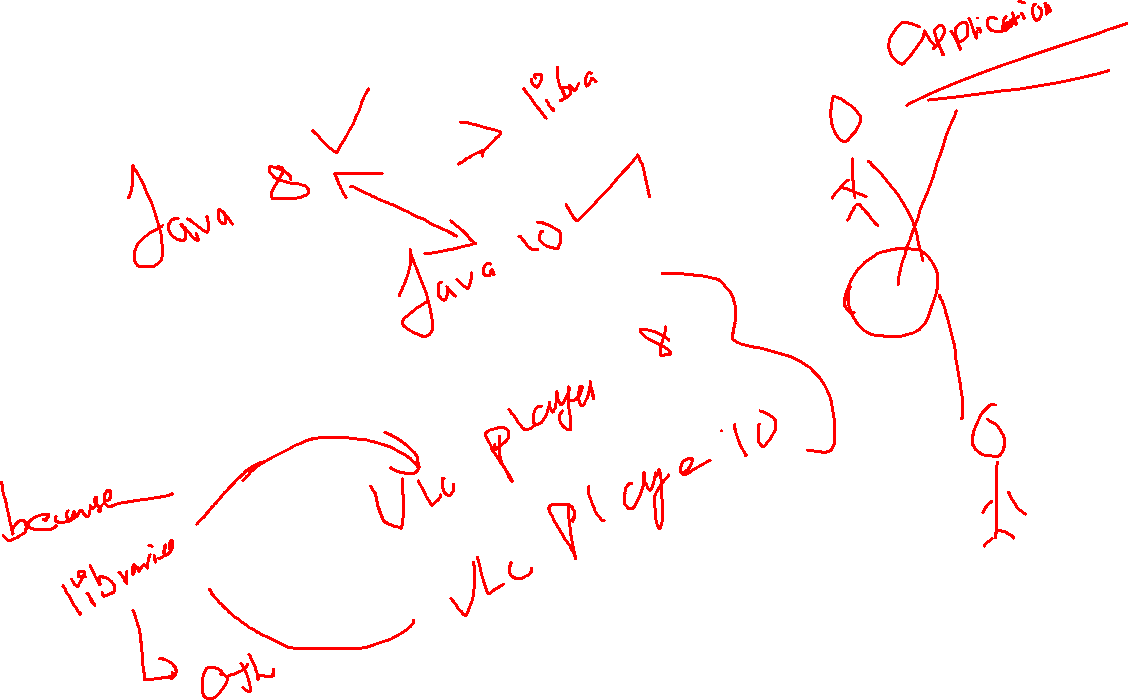 Application
libra
Java 8
Java 10
8
VLC player
10
VLC playe
because
libraries